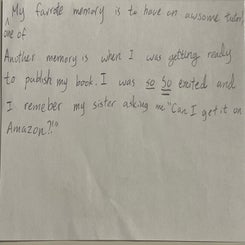 My favrote memory is to have an awsome tutor,
one of
Another memory is when I was getting ready
to publish my book. I was so so exited and
I remeber my sister asking me "Can I get it on
Amazon?!"